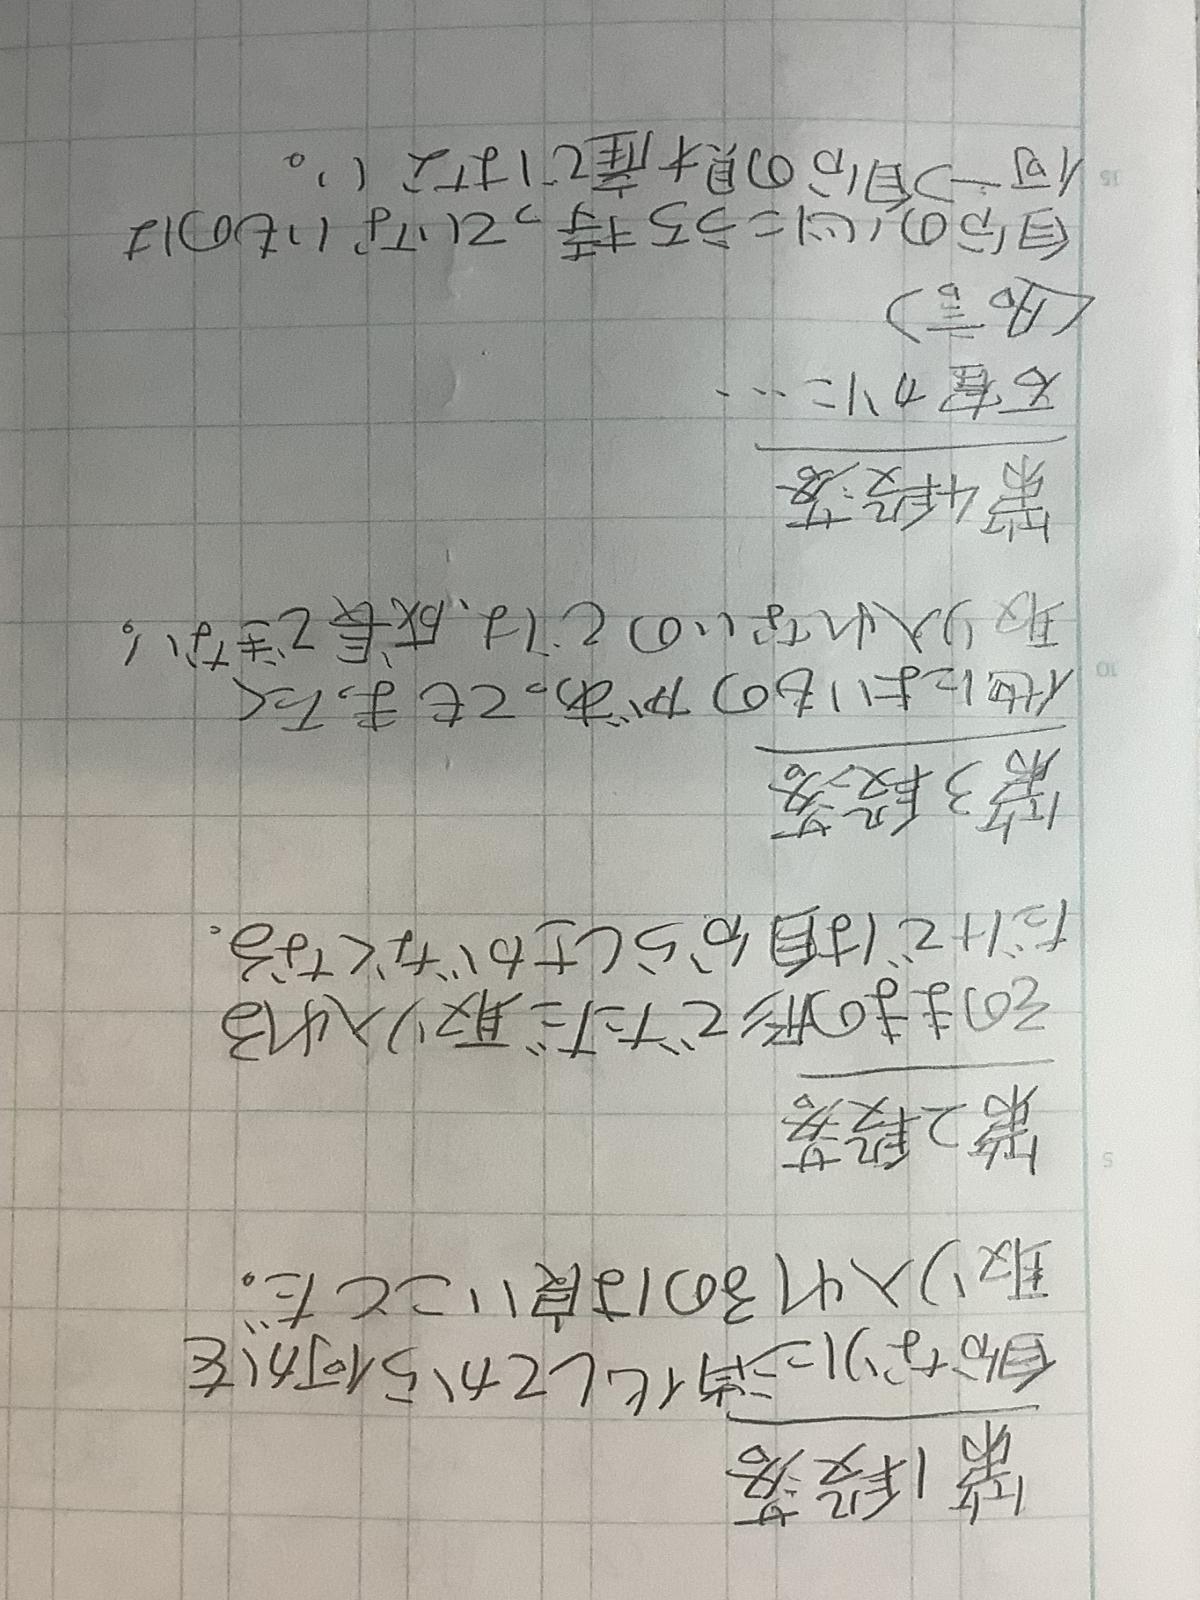 第1段落
自分なりに消化してから何かを
取り入れるのは良いことだ。
第2段落
そのままの形でただ取り入れる
だけでは自分らしさがなくなる.
第3段落
他によいものがあってもまったく
取り入れないのでは、成長できない。
第4段落
不確かに…
〈名言〉
自分の心にうち持っていないものは
何一つ自分の財産ではない。
5
10
15